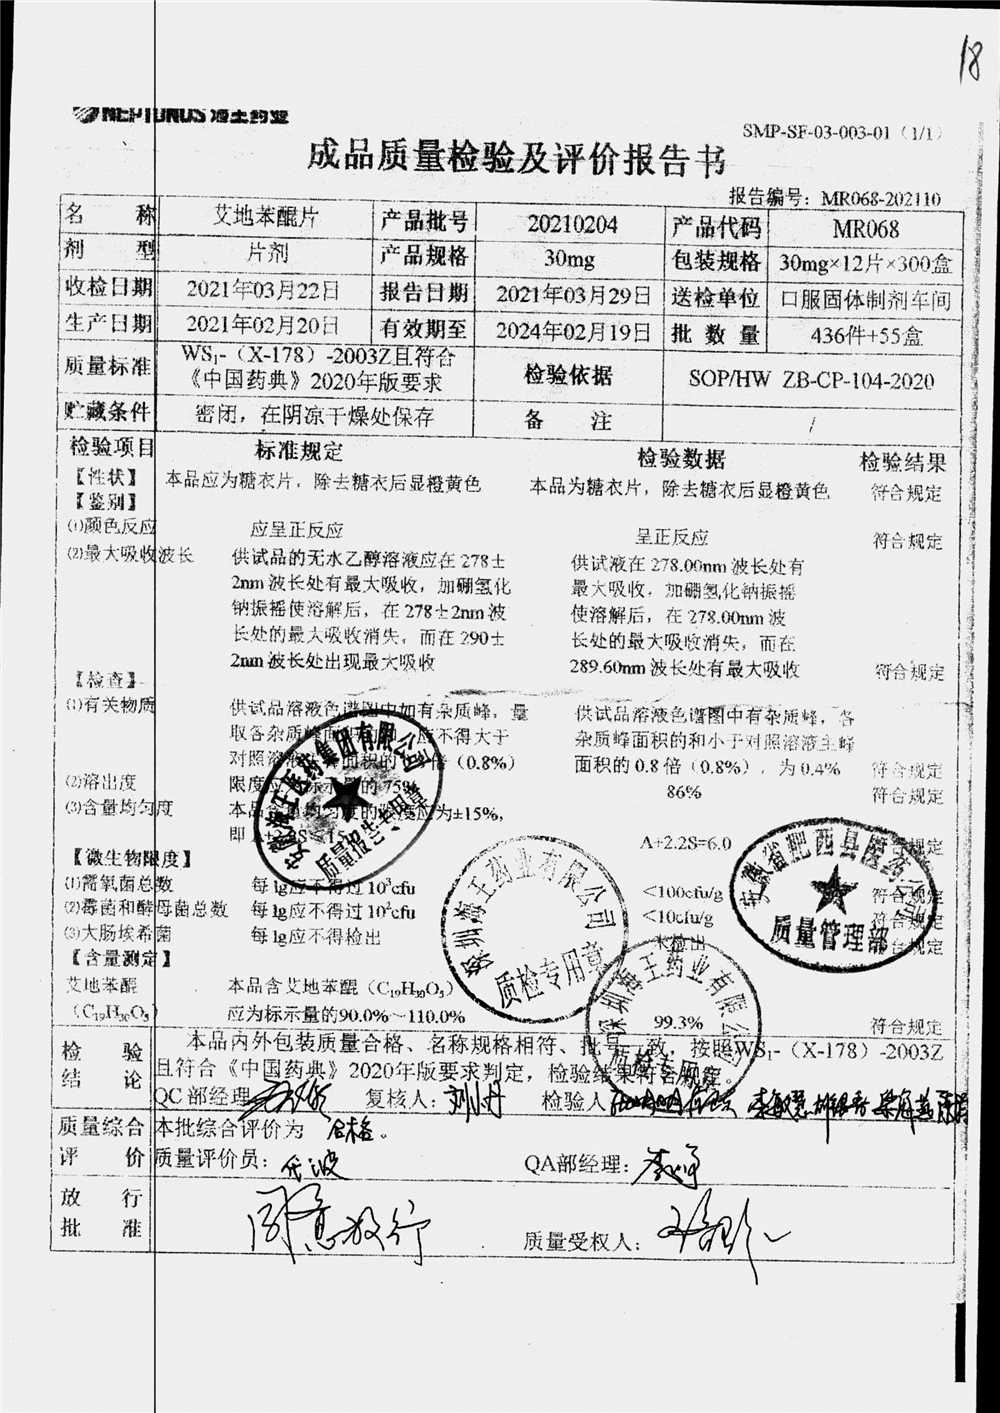 18
NEPTUNUS 海王药业
SMP-SF-03-003-01（1/1）
成品质量检验及评价报告书
报告编号：MR068-202110
名 称 艾地苯醌片 产品批号 20210204 产品代码 MR068
剂 型 片剂 产品规格 30mg 包装规格 30mg×12片×300盒
收检日期 2021年03月22日 报告日期 2021年03月29日 送检单位 口服固体制剂车间
生产日期 2021年02月20日 有效期至 2024年02月19日 批 数 量 436件+55盒
质量标准 WS₁-（X-178）-2003Z且符合《中国药典》2020年版要求 检验依据 SOP/HW ZB-CP-104-2020
贮藏条件 密闭，在阴凉干燥处保存 备 注 /
检验项目 标准规定 检验数据 检验结果
【性状】 本品应为糖衣片，除去糖衣后显橙黄色 本品为糖衣片，除去糖衣后显橙黄色 符合规定
【鉴别】
⑴颜色反应 应呈正反应 呈正反应 符合规定
⑵最大吸收波长 供试品的无水乙醇溶液应在278± 供试液在278.00nm波长处有
2nm波长处有最大吸收，加硼氢化 最大吸收，加硼氢化钠振摇
钠振摇使溶解后，在278±2nm波 使溶解后，在278.00nm波
长处的最大吸收消失，而在290± 长处的最大吸收消失，而在
2nm波长处出现最大吸收 289.60nm波长处有最大吸收 符合规定
【检查】
⑴有关物质 供试品溶液色谱图中如有杂质峰，量 供试品溶液色谱图中有杂质峰，各
取各杂质峰面积的和，应不得大于 杂质峰面积的和小于对照溶液主峰
对照溶液主峰面积的 倍（0.8%） 面积的0.8倍（0.8%），为0.4% 符合规定
⑵溶出度 限度应为标示量的75% 86% 符合规定
⑶含量均匀度 本品含量均匀度的限度应为±15%，
即A+2.2S≤15 A+2.2S=6.0 符合规定
【微生物限度】
⑴需氧菌总数 每1g应不得过10³cfu <100cfu/g 符合规定
⑵霉菌和酵母菌总数 每1g应不得过10²cfu <10cfu/g 符合规定
⑶大肠埃希菌 每1g应不得检出 未检出 符合规定
【含量测定】
艾地苯醌 本品含艾地苯醌（C₁₉H₃₀O₅）
（C₁₉H₃₀O₅） 应为标示量的90.0%～110.0% 99.3% 符合规定
安徽海王医药集团有限公司
质量报告专用章
深圳海王药业有限公司
质检专用章
安徽省肥西县医药公司
质量管理部
深圳海王药业有限公司
质检专用章
检 验 结 论 本品内外包装质量合格、名称规格相符、批号一致，按照WS₁-（X-178）-2003Z
且符合《中国药典》2020年版要求判定，检验结果符合规定。
QC部经理 复核人：刘小丹 检验人
质量综合 本批综合评价为 合格。
评 价 质量评价员： QA部经理：
放 行 批 准 同意放行 质量受权人：